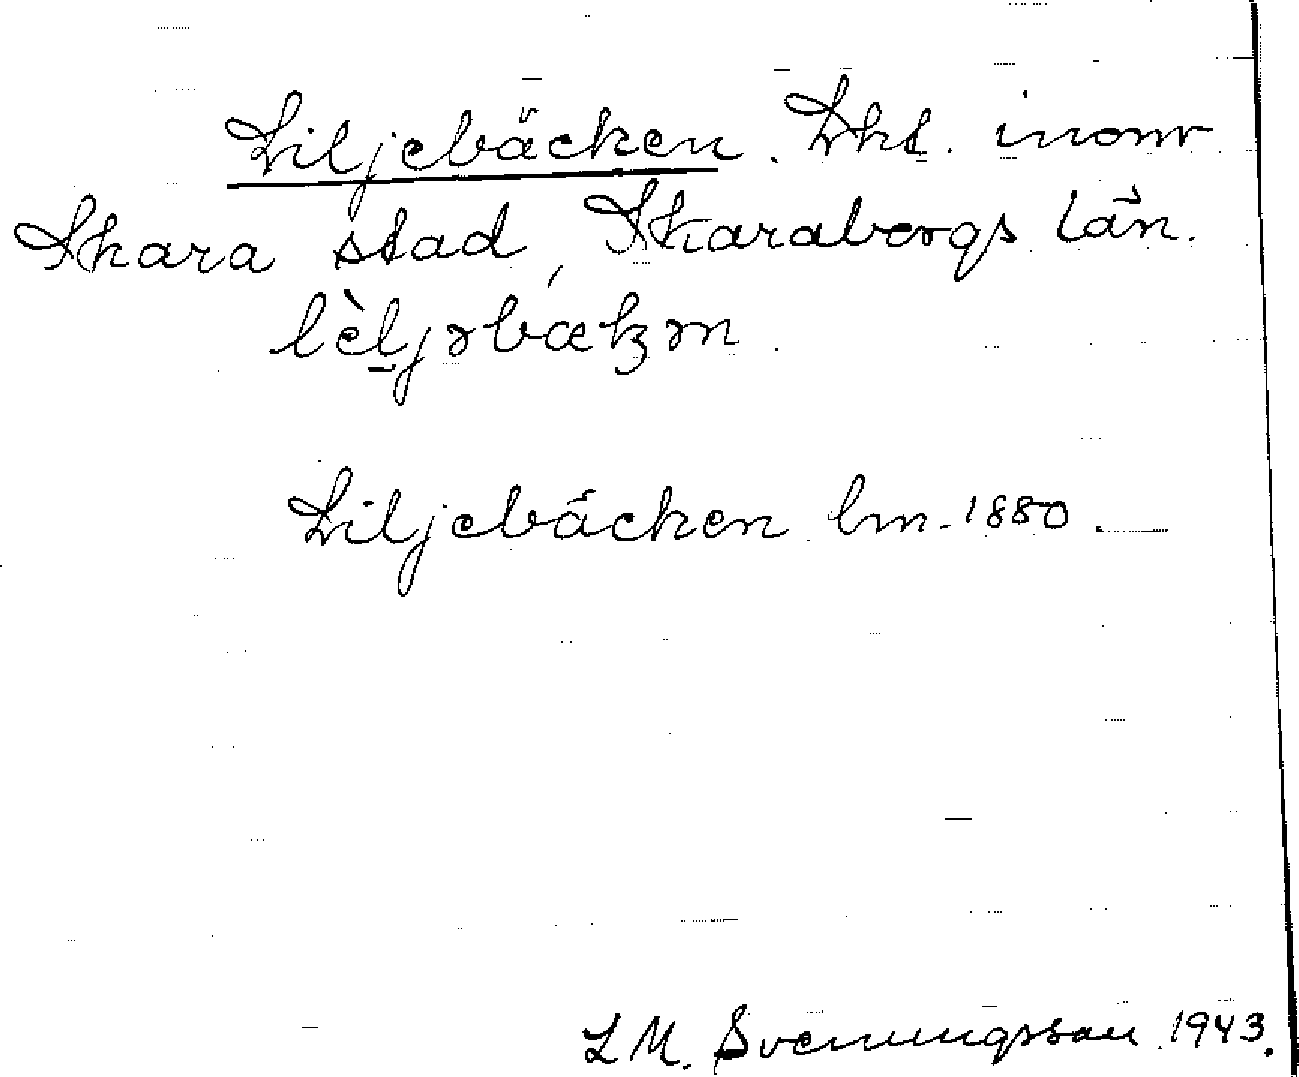 Liljebäcken. Lht. inom
Skara stad, Skarabergs län.
lèljəbækən.
Liljebäcken lm. 1880.
L M. Svenungsson 1943.